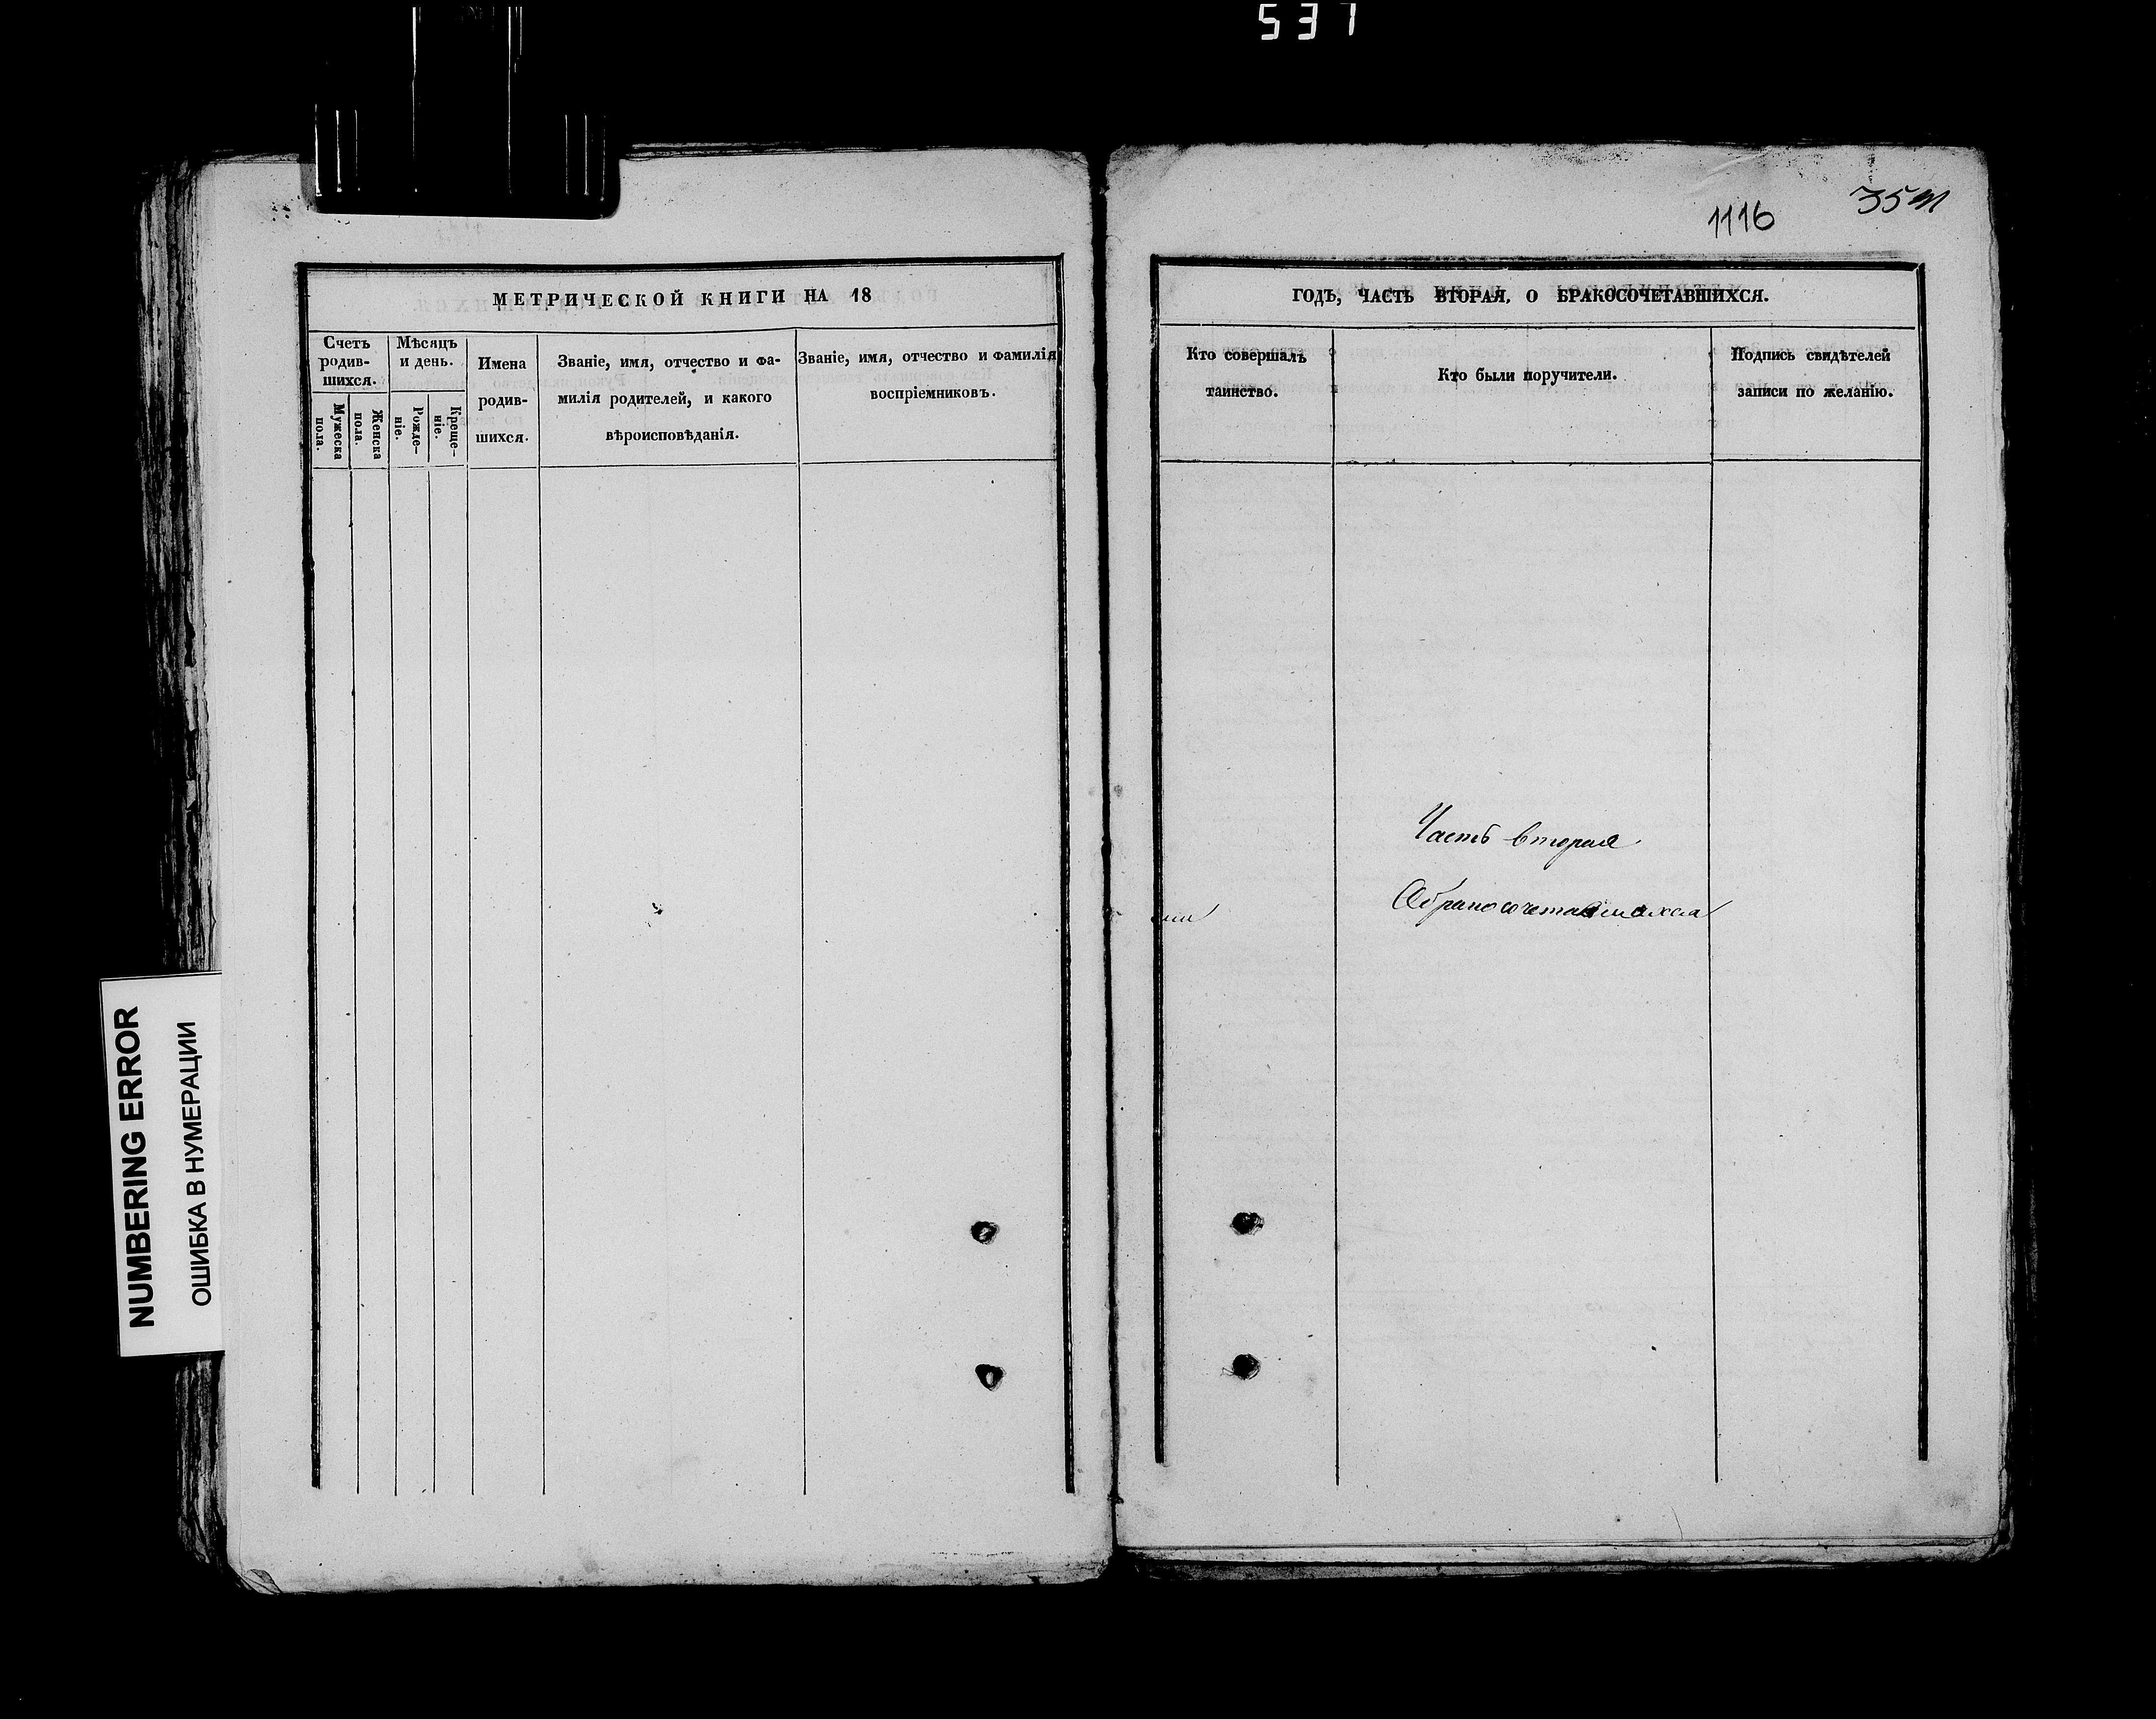 537
1116
МЕТРИЧЕСКОЙ КНИГИ НА 18
Счетъ
родив-
шихся.
Мужеска
пола.
Женска
пола.
Мѣсяцъ
и день.
Рожде-
ніе.
Креще-
ніе.
Имена
родив-
шихся.
Званіе, имя, отчество и фа-
милія родителей, и какого
вѣроисповѣданія.
Званіе, имя, отчество и фамилія
воспріемниковъ.
ГОДЪ, ЧАСТЬ ВТОРАЯ, О БРАКОСОЧЕТАВШИХСЯ.
Кто совершалъ
таинство.
Кто были поручители.
Подпись свидѣтелей
записи по желанію.
Часть вторая
NUMBERING ERROR
ОШИБКА В НУМЕРАЦИИ